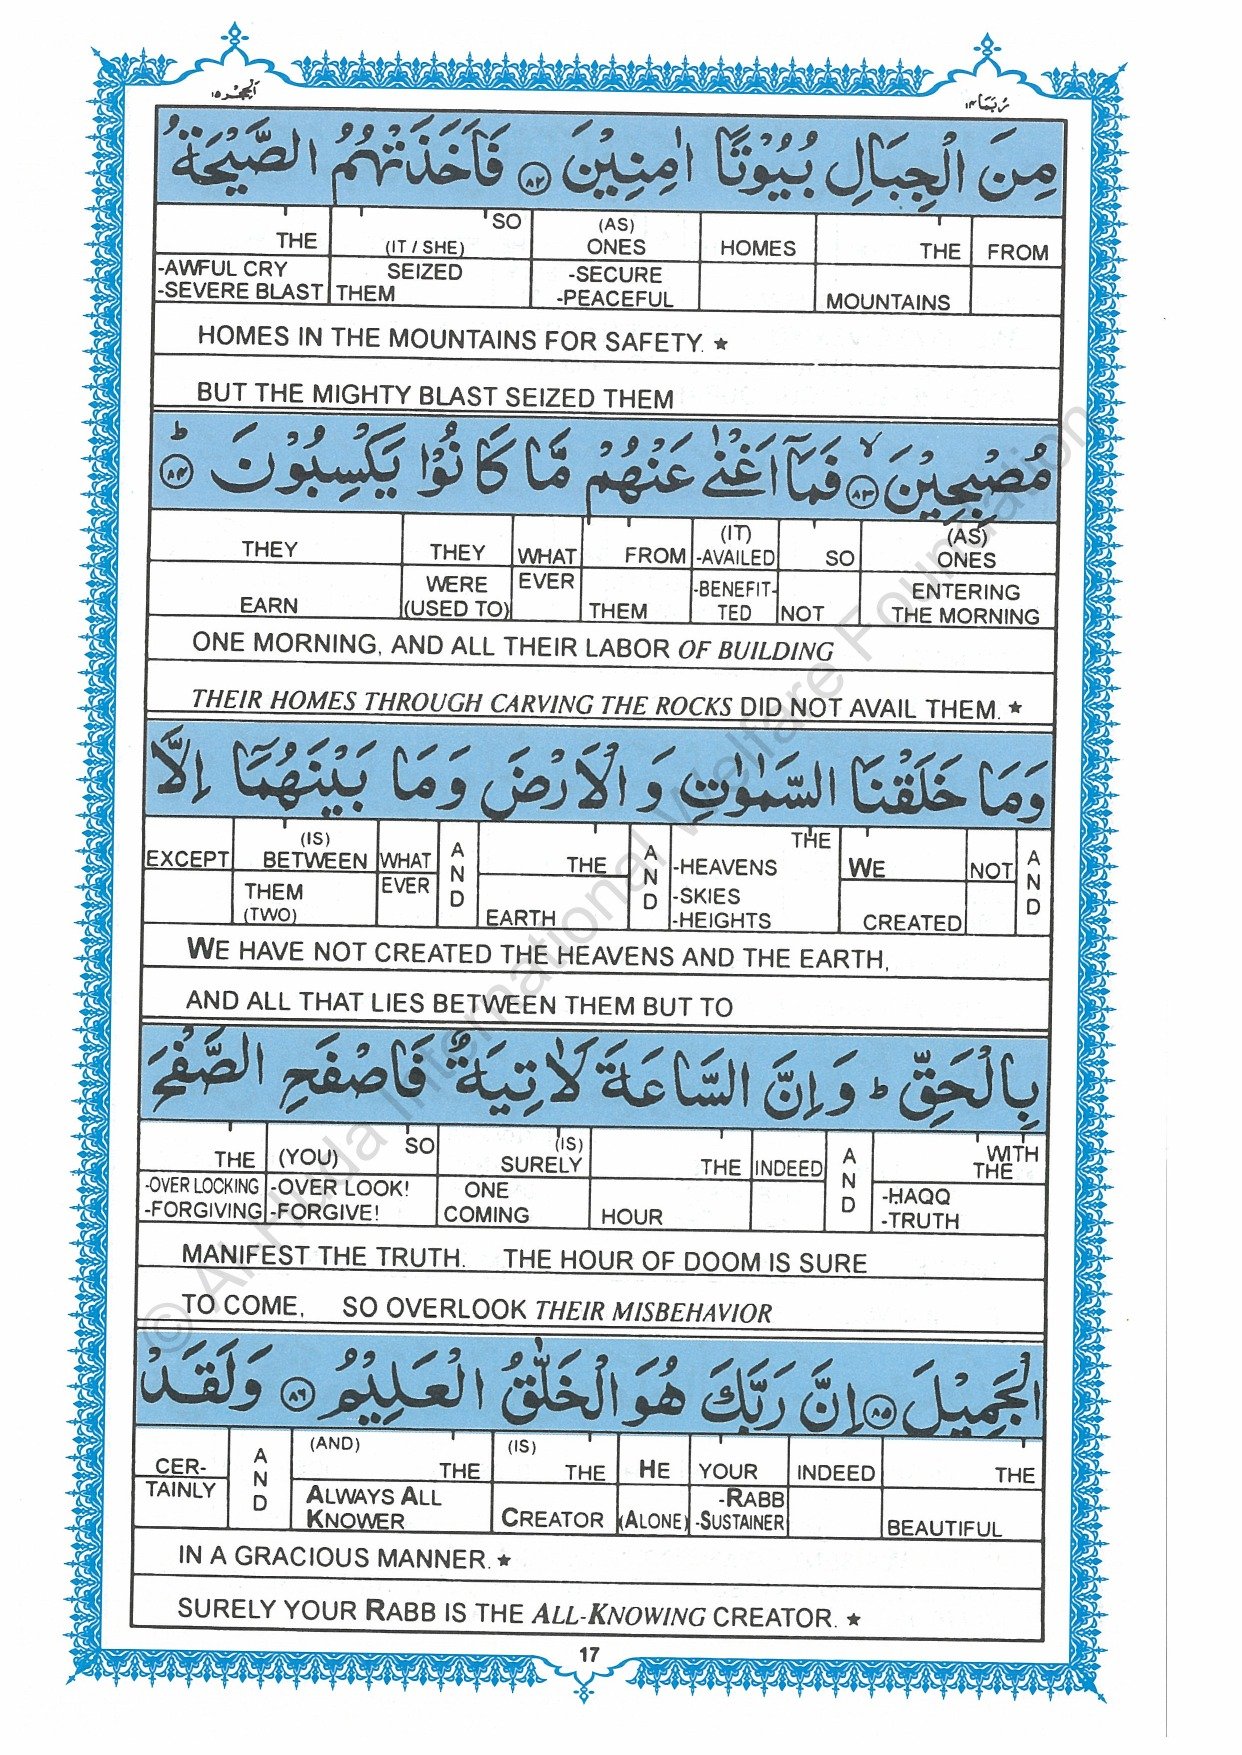 الحجر ١٥
ربما ١٤
مِنَ الْجِبَالِ بُيُوْتًا اٰمِنِيْنَ ﴿۸۲﴾ فَاَخَذَتْهُمُ الصَّيْحَةُ
THE (IT / SHE) SO (AS) ONES HOMES THE FROM
-AWFUL CRY -SEVERE BLAST SEIZED THEM -SECURE -PEACEFUL MOUNTAINS
HOMES IN THE MOUNTAINS FOR SAFETY. ★
BUT THE MIGHTY BLAST SEIZED THEM
مُصْبِحِيْنَ ﴿۸۳﴾ۙ فَمَاۤ اَغْنٰى عَنْهُمْ مَّا كَانُوْا يَكْسِبُوْنَ ﴿۸۴﴾ؕ
THEY THEY WHAT FROM (IT) -AVAILED SO (AS) ONES
EARN WERE (USED TO) EVER THEM -BENEFIT-TED NOT ENTERING THE MORNING
ONE MORNING, AND ALL THEIR LABOR OF BUILDING
THEIR HOMES THROUGH CARVING THE ROCKS DID NOT AVAIL THEM. ★
وَمَا خَلَقْنَا السَّمٰوٰتِ وَ الْاَرْضَ وَمَا بَيْنَهُمَاۤ اِلَّا
EXCEPT (IS) BETWEEN WHAT AND THE AND THE -HEAVENS WE NOT AND
THEM (TWO) EVER EARTH -SKIES -HEIGHTS CREATED
WE HAVE NOT CREATED THE HEAVENS AND THE EARTH,
AND ALL THAT LIES BETWEEN THEM BUT TO
بِالْحَقِّ ؕ وَ اِنَّ السَّاعَةَ لَاٰتِيَةٌ فَاصْفَحِ الصَّفْحَ
THE (YOU) SO (IS) SURELY THE INDEED AND WITH THE
-OVER LOOKING -FORGIVING -OVER LOOK! -FORGIVE! ONE COMING HOUR -HAQQ -TRUTH
MANIFEST THE TRUTH. THE HOUR OF DOOM IS SURE
TO COME, SO OVERLOOK THEIR MISBEHAVIOR
الْجَمِيْلَ ﴿۸۵﴾ اِنَّ رَبَّكَ هُوَ الْخَلّٰقُ الْعَلِيْمُ ﴿۸۶﴾ وَلَقَدْ
CER- AND (AND) THE (IS) THE HE YOUR INDEED THE
TAINLY ALWAYS ALL KNOWER CREATOR (ALONE) -RABB -SUSTAINER BEAUTIFUL
IN A GRACIOUS MANNER. ★
SURELY YOUR RABB IS THE ALL-KNOWING CREATOR. ★
17
© Al-Huda International Welfare Foundation